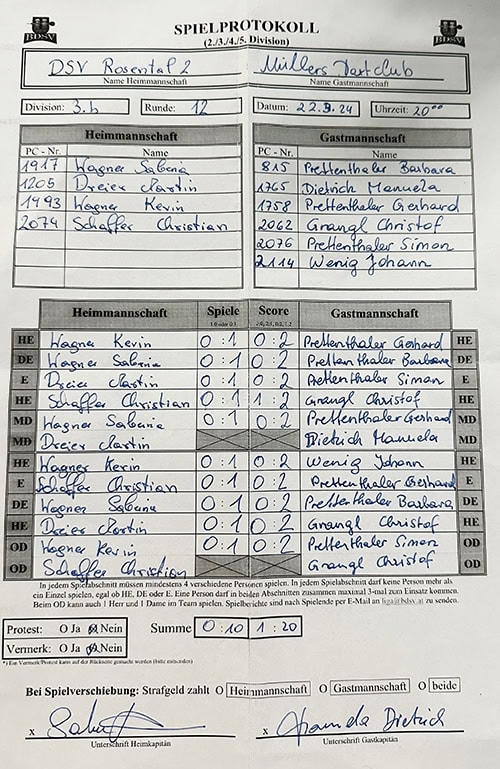 SPIELPROTOKOLL
(2./3./4./5. Division)
BDSV BDSV
DSV Rosental 2 Müllers Dartclub
Name Heimmannschaft Name Gastmannschaft
Division: 3.b Runde: 12 Datum: 22.3.24 Uhrzeit: 20⁰⁰
Heimmannschaft Gastmannschaft
PC - Nr. Name PC - Nr. Name
1917 Wagner Sabina 815 Prettenthaler Barbara
1205 Dreier Martin 1765 Dietrich Manuela
1493 Wagner Kevin 1758 Prettenthaler Gerhard
2074 Schaffer Christian 2062 Grangl Christof
2076 Prettenthaler Simon
2114 Wenig Johann
Heimmannschaft Spiele Score Gastmannschaft
1:0 oder 0:1 2:0, 2:1, 0:2, 1:2
HE Wagner Kevin 0:1 0:2 Prettenthaler Gerhard HE
DE Wagner Sabina 0:1 0:2 Prettenthaler Barbara DE
E Dreier Martin 0:1 0:2 Prettenthaler Simon E
HE Schaffer Christian 0:1 1:2 Grangl Christof HE
MD Wagner Sabina 0:1 0:2 Prettenthaler Gerhard MD
MD Dreier Martin Dietrich Manuela MD
HE Wagner Kevin 0:1 0:2 Wenig Johann HE
E Schaffer Christian 0:1 0:2 Prettenthaler Gerhard E
DE Wagner Sabina 0:1 0:2 Prettenthaler Barbara DE
HE Dreier Martin 0:1 0:2 Grangl Christof HE
OD Wagner Kevin 0:1 0:2 Prettenthaler Simon OD
OD Schaffer Christian Grangl Christof OD
In jedem Spielabschnitt müssen mindestens 4 verschiedene Personen spielen. In jedem Spielabschnitt darf keine Person mehr als
ein Einzel spielen, egal ob HE, DE oder E. Eine Person darf in beiden Abschnitten zusammen maximal 3-mal zum Einsatz kommen.
Beim OD kann auch 1 Herr und 1 Dame im Team spielen. Spielberichte sind nach Spielende per E-Mail an liga@bdsv.at zu senden.
Protest: O Ja O Nein Summe 0:10 1:20
Vermerk: O Ja O Nein
*) Ein Vermerk/Protest kann auf der Rückseite gemacht werden (bitte ankreuzen)
Bei Spielverschiebung: Strafgeld zahlt O Heimmannschaft O Gastmannschaft O beide
x x Manuela Dietrich
Unterschrift Heimkapitän Unterschrift Gastkapitän